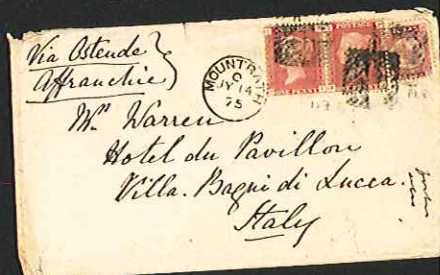 Via Ostende
Affranchie
MOUNTRATH
O
JY 14
75
Mrs Warren
Hotel du Pavillon
Villa. Bagni di Lucca.
Italy